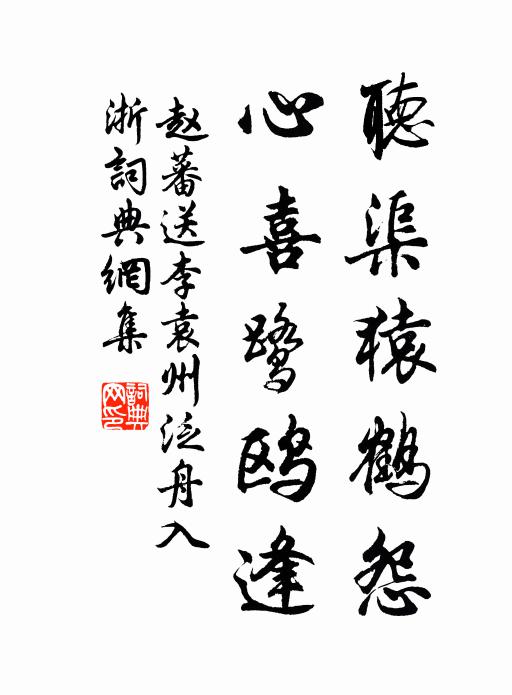 聽渠猿鶴怨
心喜鷺鷗逢
赵蕃送李袁州泛舟入
浙詞典網集
詞典网印